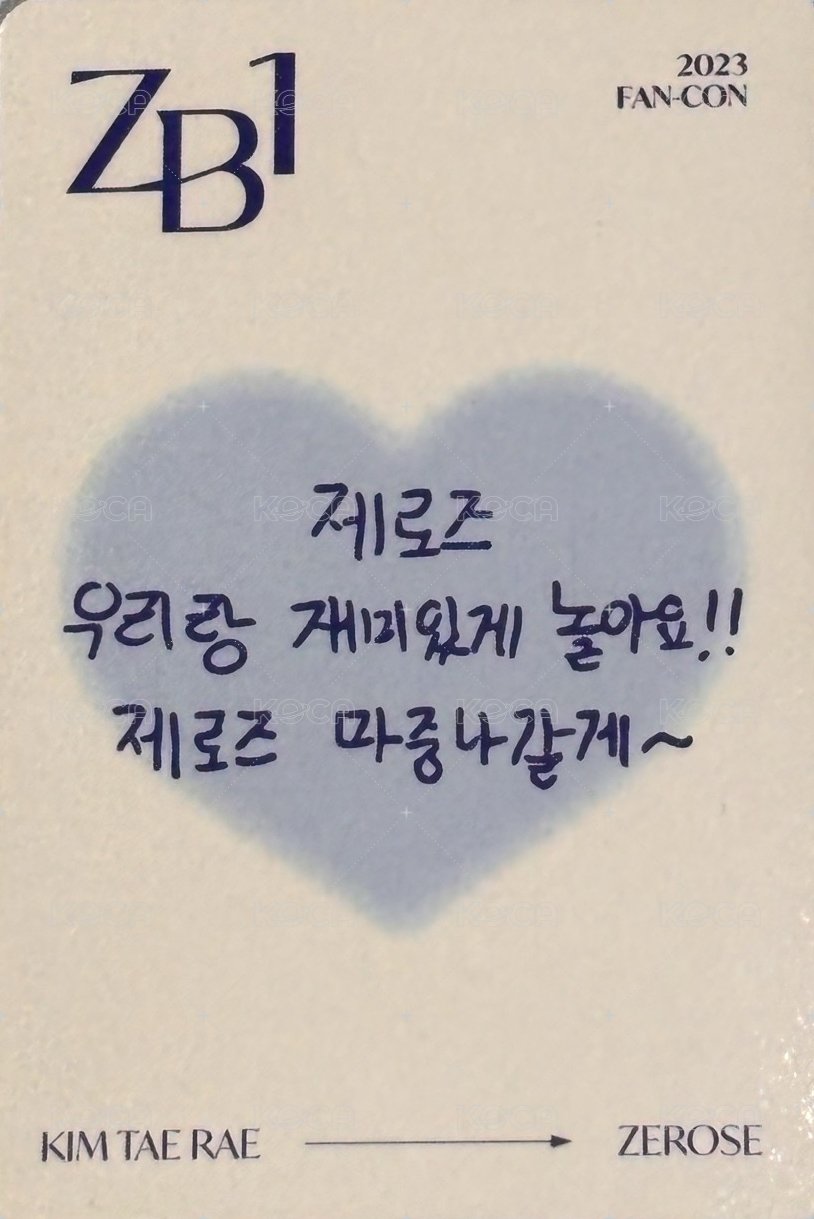 ZB1
2023
FAN-CON
제로즈
우리랑 재미있게 놀아요!!
제로즈 마중나갈게~
KIM TAE RAE → ZEROSE
KOCA